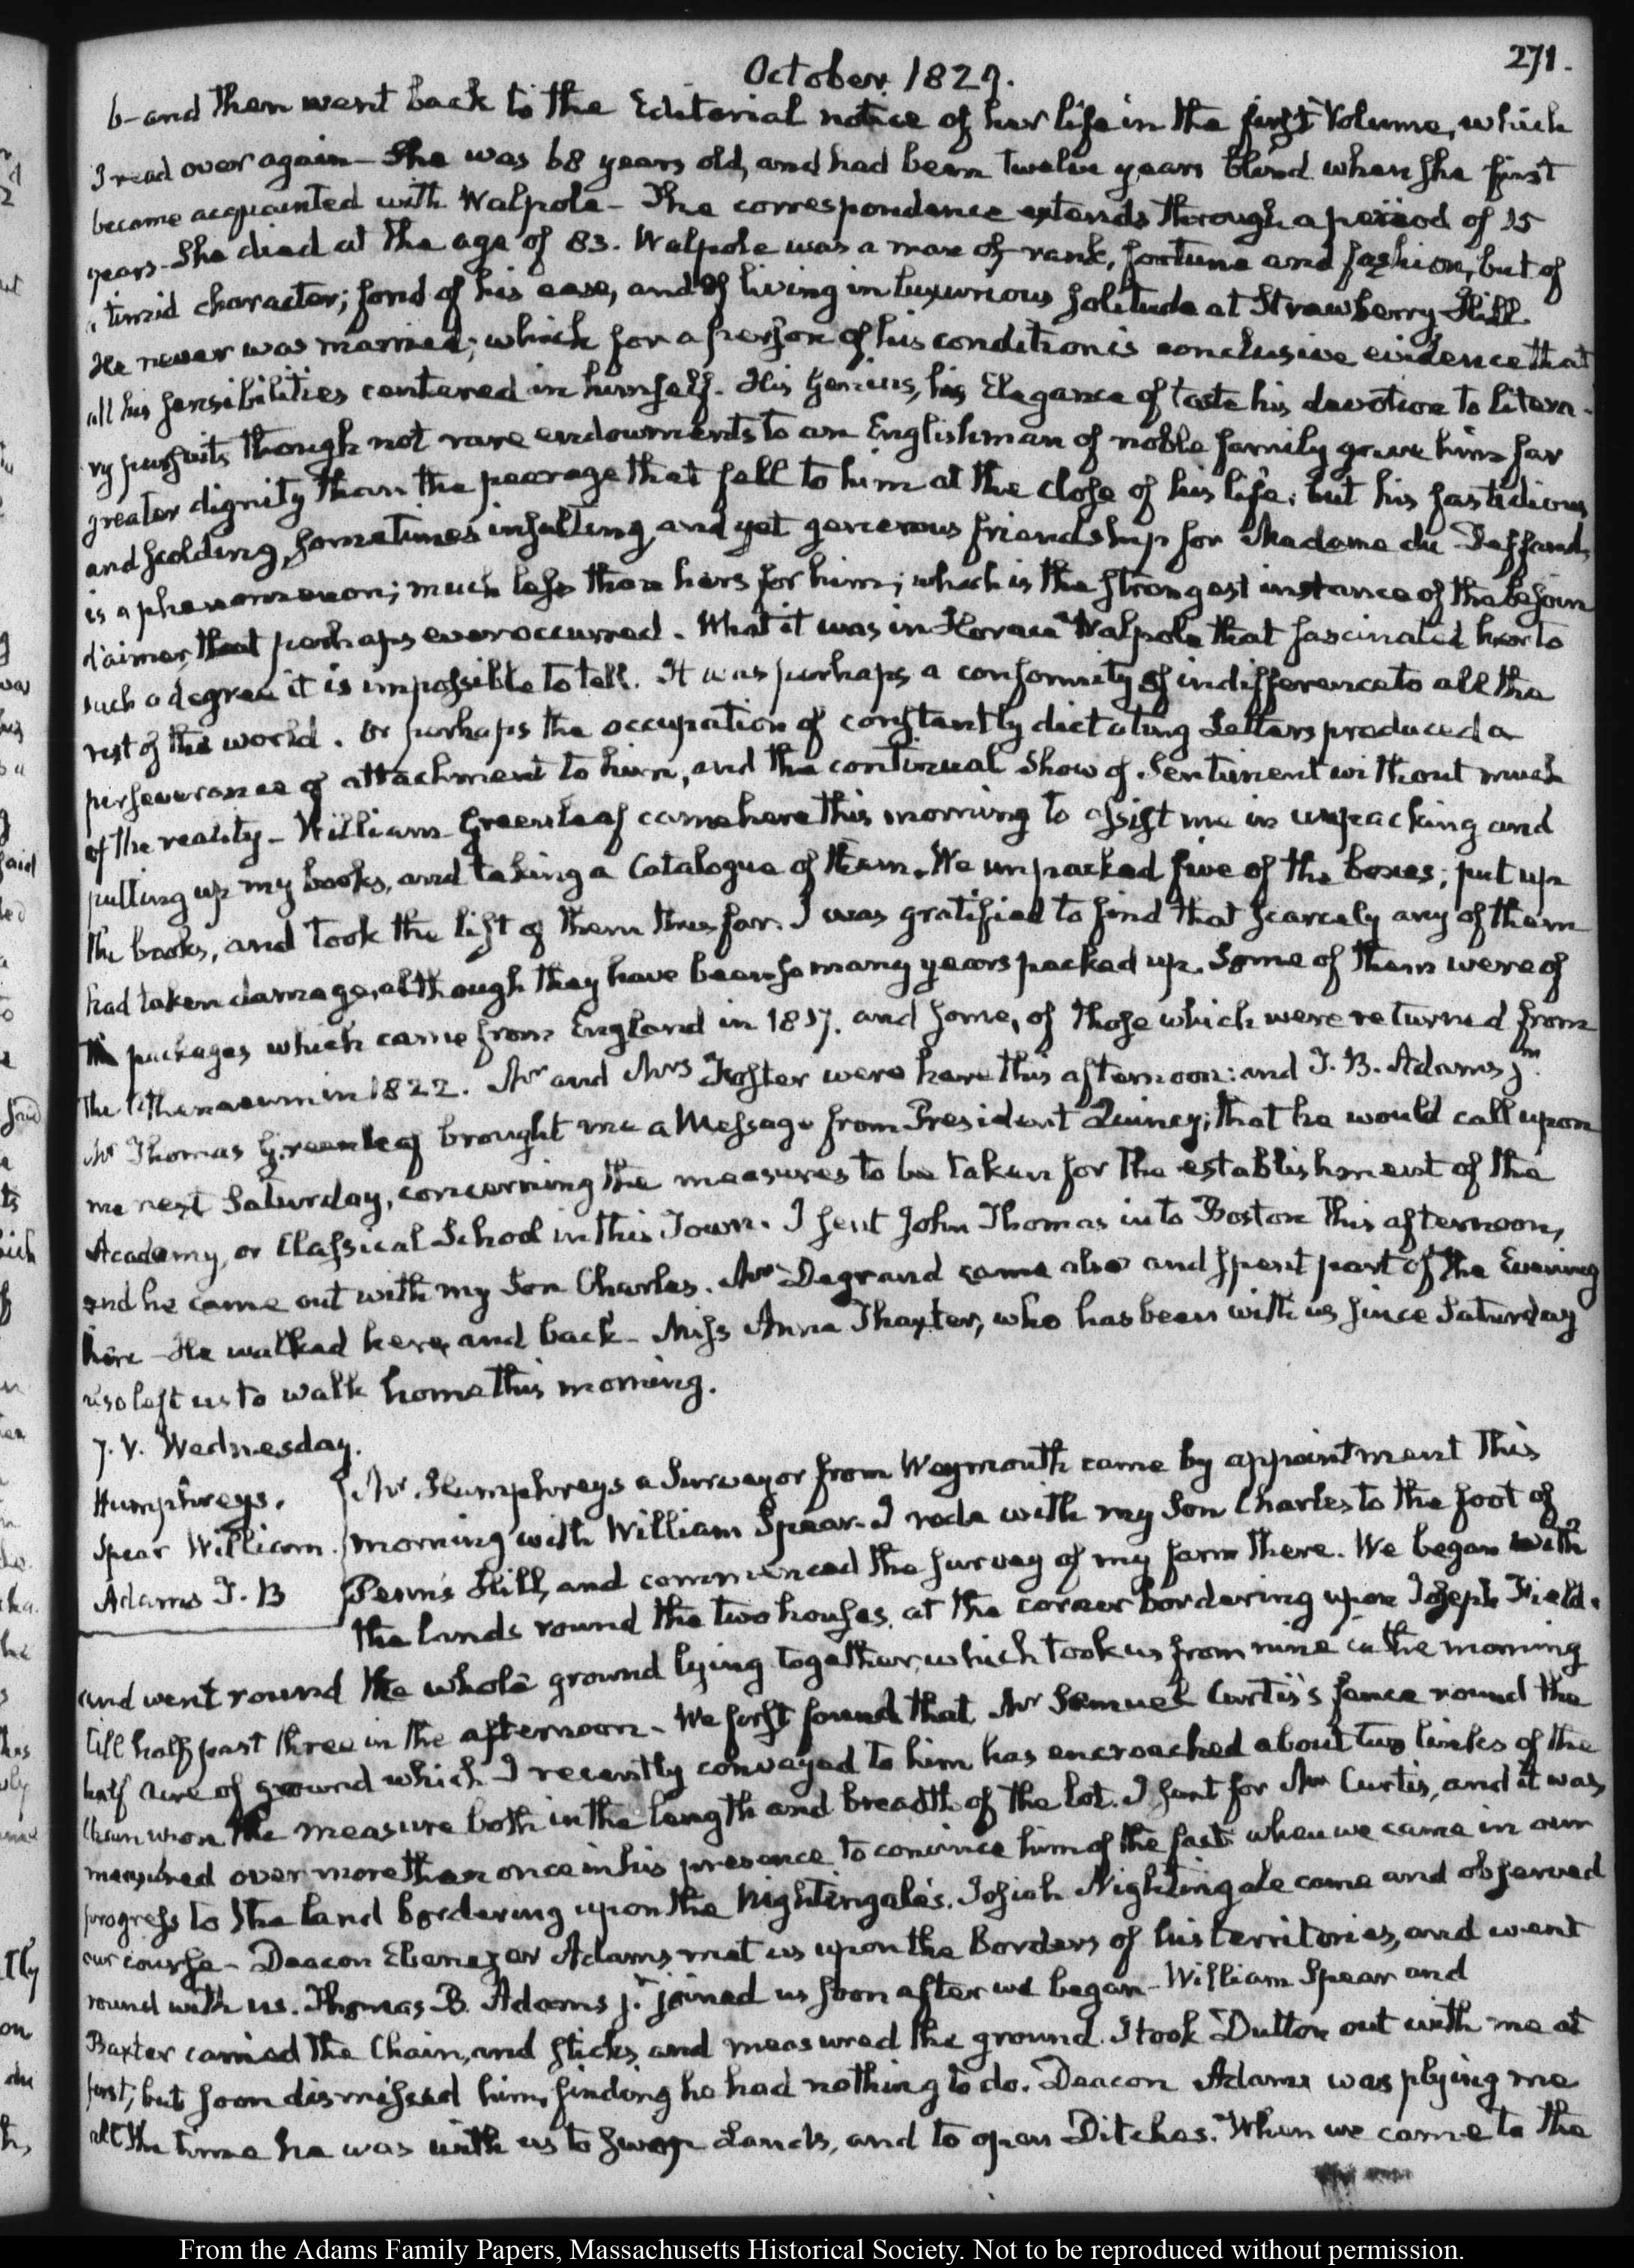 271.
October 1827.
6 — and then went back to the Editorial notice of her life in the first Volume, which
I read over again — She was 68 years old, and had been twelve years blind when she first
became acquainted with Walpole — The correspondence extends through a period of 15
years. She died at the age of 83. Walpole was a man of rank, fortune and fashion, but of
a timid character; fond of his ease, and of living in luxurious solitude at Strawberry Hill.
He never was married; which for a person of his condition is conclusive evidence that
all his sensibilities centered in himself. His Genius, his Elegance of taste his devotion to litera-
ry pursuits though not rare endowments to an Englishman of noble family gave him far
greater dignity than the peerage that fell to him at the close of his life; but his fastidious
and scolding, sometimes insulting, and yet generous friendship for Madame du Deffand,
is a phenomenon; much less than hers for him; which is the strongest instance of the besoin
d'aimer, that perhaps ever occurred. What it was in Horace Walpole that fascinated her to
such a degree it is impossible to tell. It was perhaps a conformity of indifference to all the
rest of the world. Or perhaps the occupation of constantly dictating Letters produced a
perseverance of attachment to him, and the continual show of Sentiment without much
of the reality — William Greenleaf came here this morning to assist me in unpacking and
putting up my books, and taking a Catalogue of them. We unpacked five of the boxes; put up
the books, and took the list of them thus far. I was gratified to find that scarcely any of them
had taken damage, although they have been so many years packed up. Some of them were of
the packages which came from England in 1817. and some, of those which were returned from
the Athenaeum in 1822. Mr and Mrs Foster were here this afternoon: and T. B. Adams jr.
Mr Thomas Greenleaf brought me a Message from President Quincy; that he would call upon
me next Saturday, concerning the measures to be taken for the establishment of the
Academy, or Classical School in this Town. I sent John Thomas into Boston this afternoon,
and he came out with my Son Charles. Mr Degrand came also and spent part of the Evening
here — He walked here, and back — Miss Anna Thaxter, who has been with us since Saturday
also left us to walk home this morning.
7. V. Wednesday.
Humphreys.
Spear William.
Adams T. B
Mr Humphreys a Surveyor from Weymouth came by appointment this
morning with William Spear — I rode with my Son Charles to the foot of
Penn's Hill, and commenced the survey of my farm there. We began with
the lands round the two houses, at the corner bordering upon Joseph Field.
and went round the whole ground lying together, which took us from nine in the morning
till half past three in the afternoon — We first found that Mr Samuel Curtis's fence round the
half acre of ground which I recently conveyed to him has encroached about two links of the
chain upon the measure both in the length and breadth of the lot. I sent for Mr Curtis, and it was
measured over more than once in his presence to convince him of the fact. When we came in our
progress to the land bordering upon the Nightingale's. Josiah Nightingale came and observed
our course — Deacon Ebenezer Adams met us upon the Borders of his territories, and went
round with us. Thomas B. Adams jr. joined us soon after we began — William Spear and
Baxter carried the Chain, and sticks and measured the ground. I took Dutton out with me at
first; but soon dismissed him, finding he had nothing to do. Deacon Adams was plying me
all the time he was with us to swap Lands, and to open Ditches. When we came to the
From the Adams Family Papers, Massachusetts Historical Society. Not to be reproduced without permission.